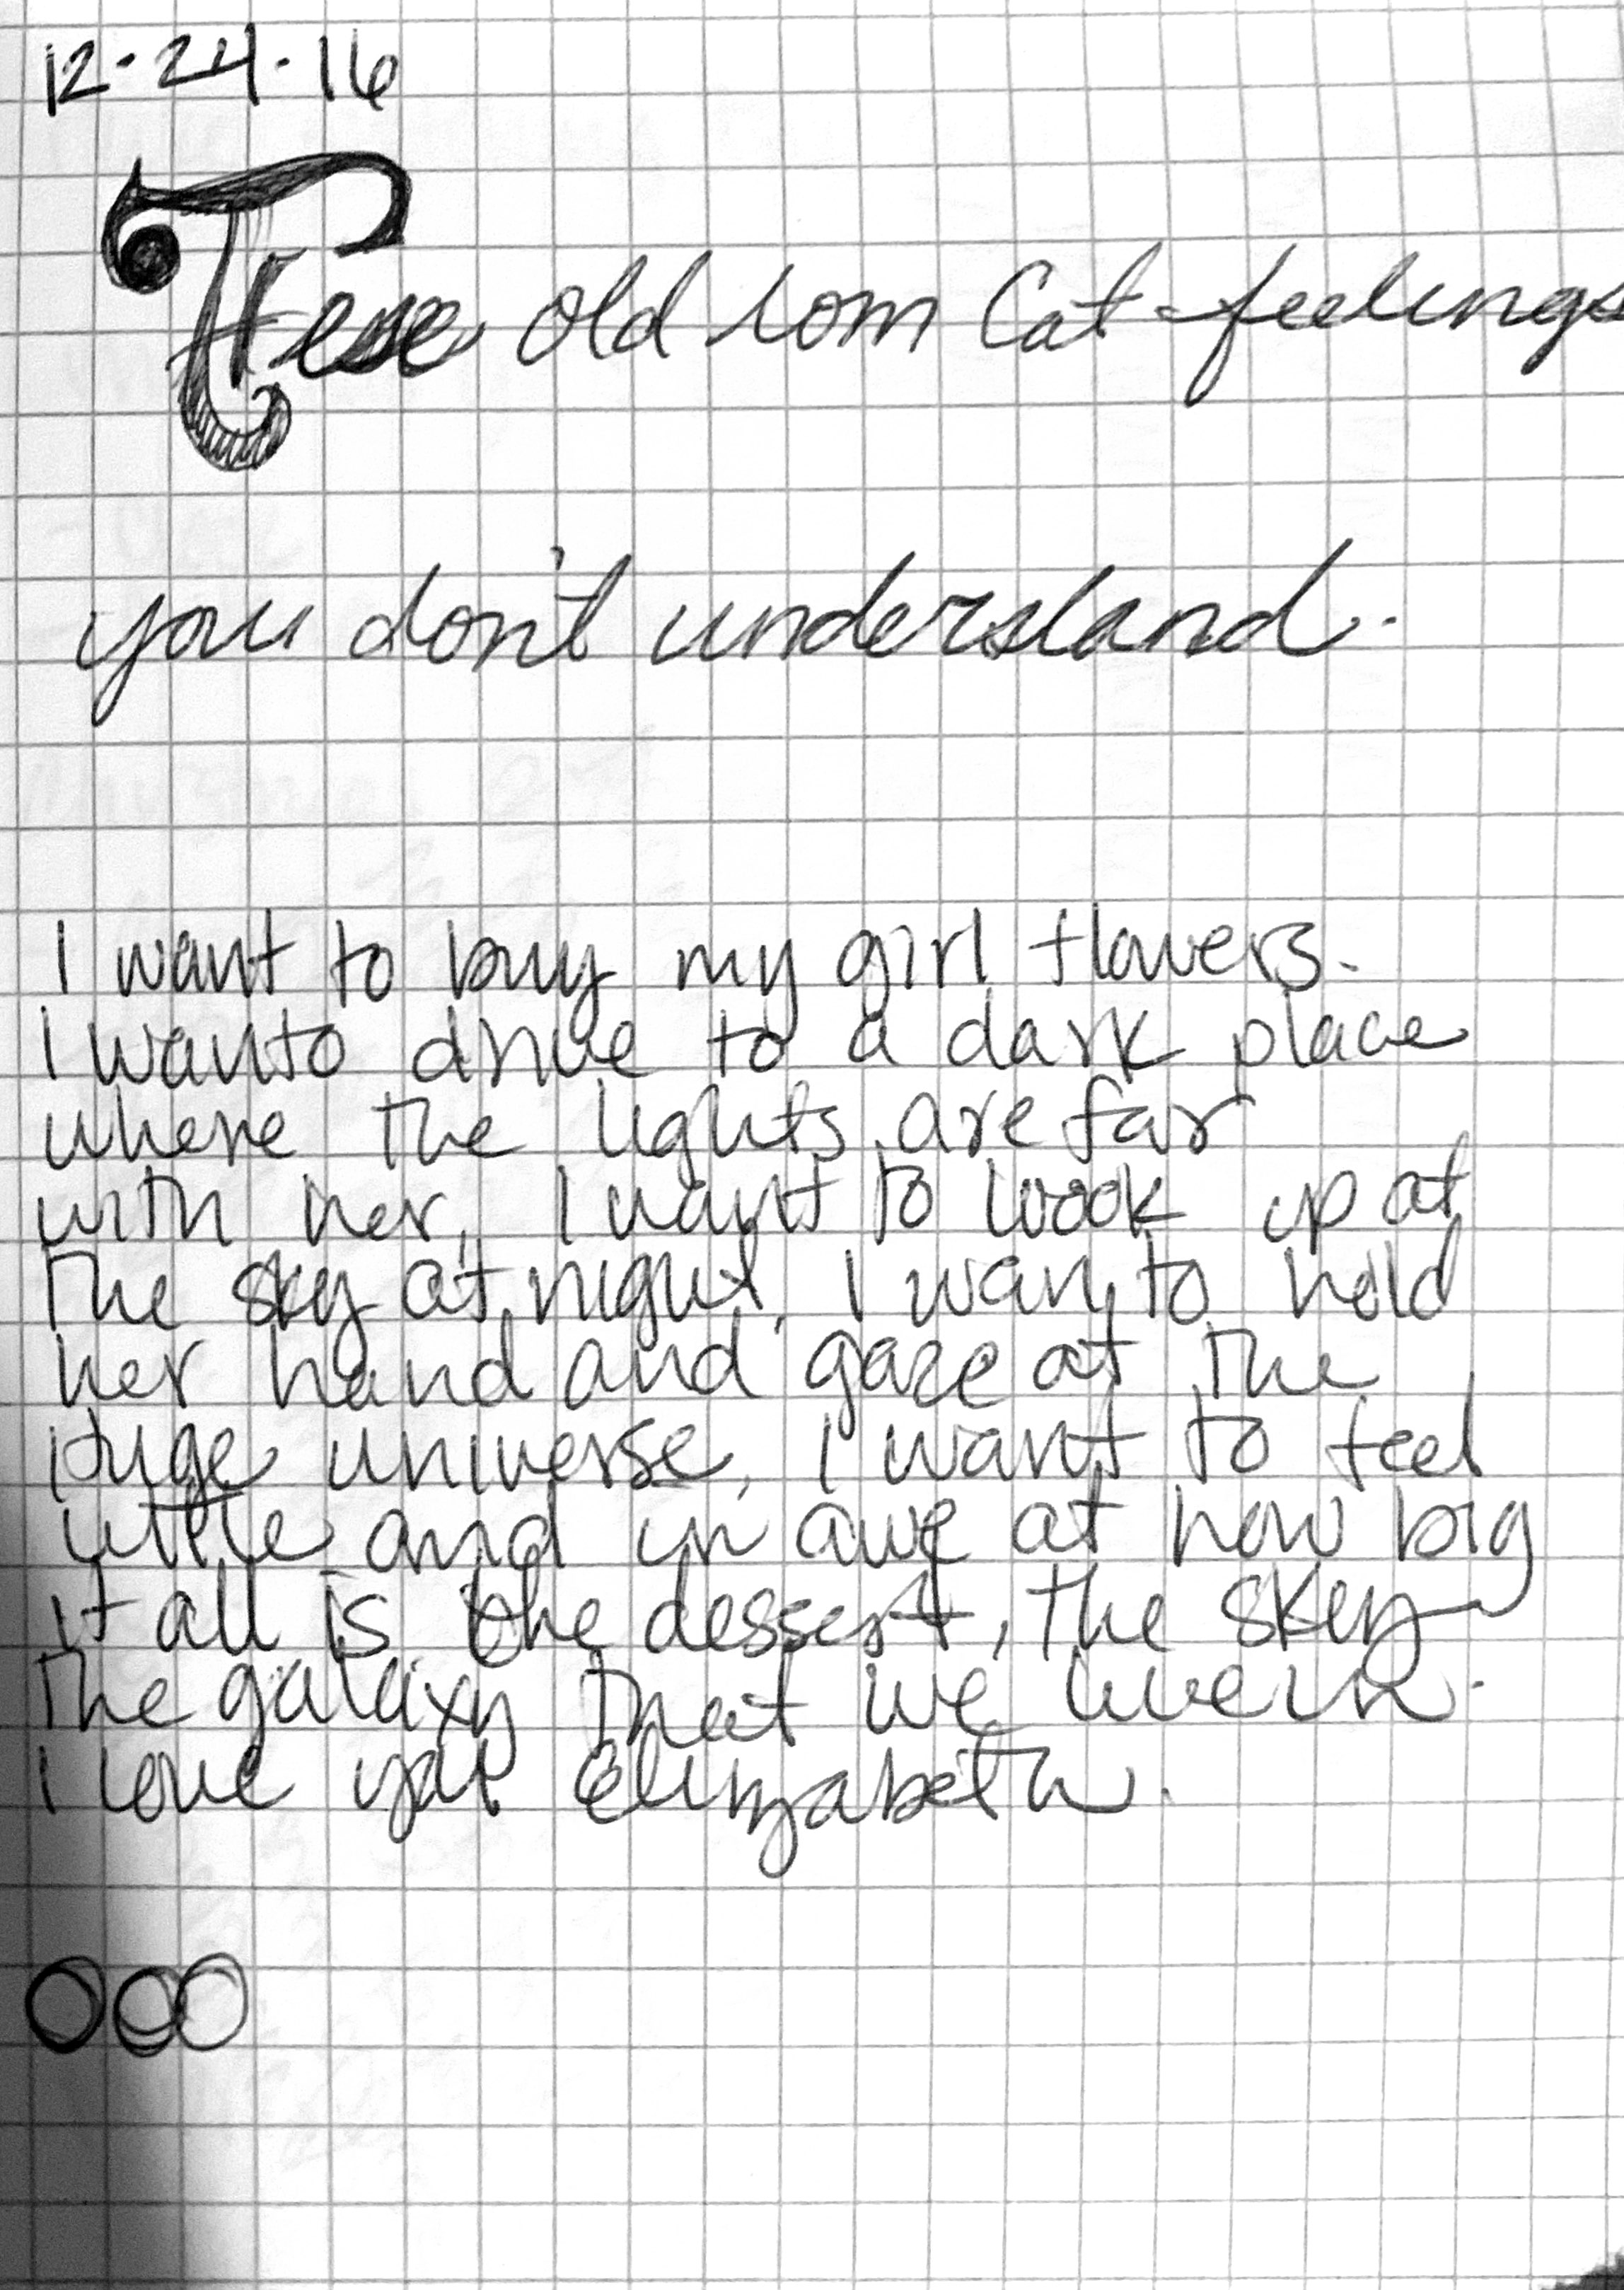 12-24-16
These old tom Cat-feelings
you don't understand.
I want to buy my girl flowers.
I wanto drive to a dark place
where the lights are far
with her, I want to look up at
the sky at night, I want to hold
her hand and gaze at the
Huge universe, I want to feel
little and in awe at how big
it all is the dessert, the sky
the galaxy that we live in.
I love you Elizabeth.